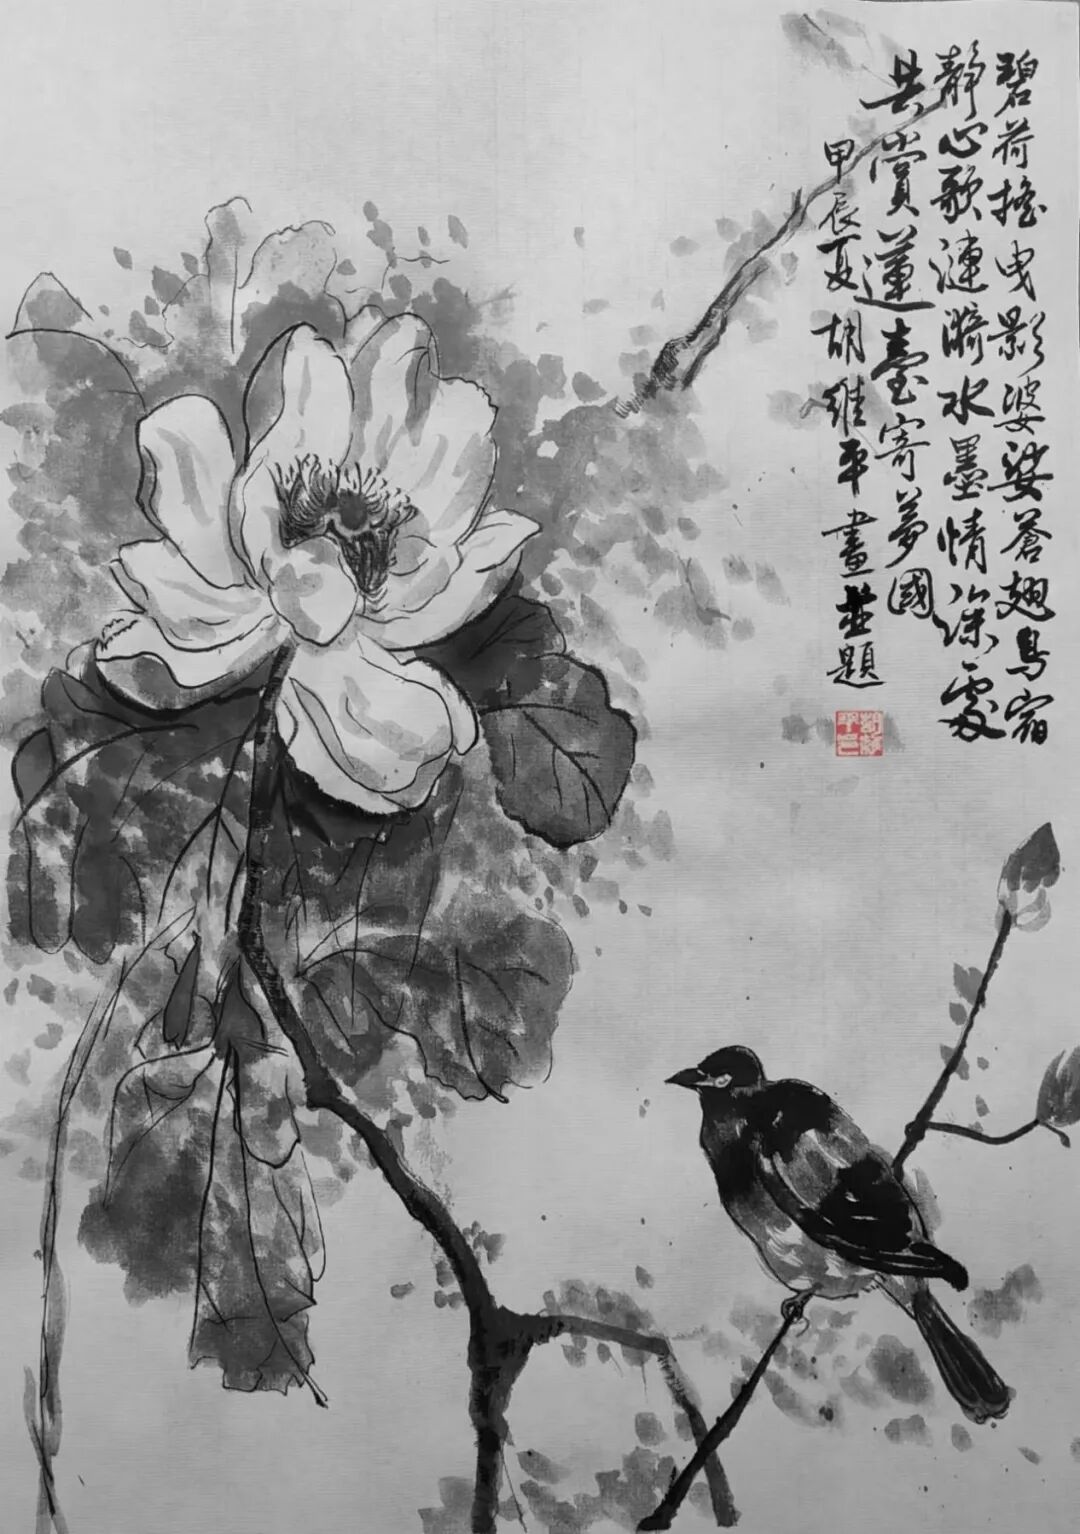 碧荷搖曳影婆娑蒼翅鳥宿
靜心歌漣漪水墨情深處
共賞蓮臺寄夢國
甲辰夏胡維平畫並題
胡維平印